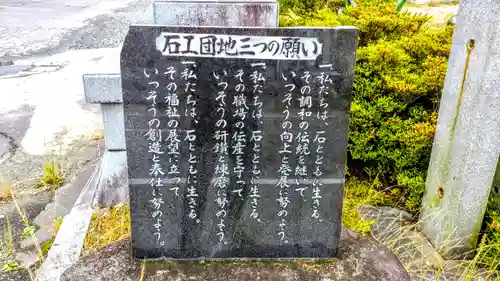 石工団地三つの願い
一、私たちは、石とともに生きる。
その調和の伝統を継いで
いつそうの向上と発展に努めよう。
一、私たちは、石とともに生きる。
その職場の伝産を守って
いつそうの研鑚と練磨に努めよう。
一、私たちは、石とともに生きる。
その福祉の展望に立つて
いつそうの創造と奉仕に努めよう。